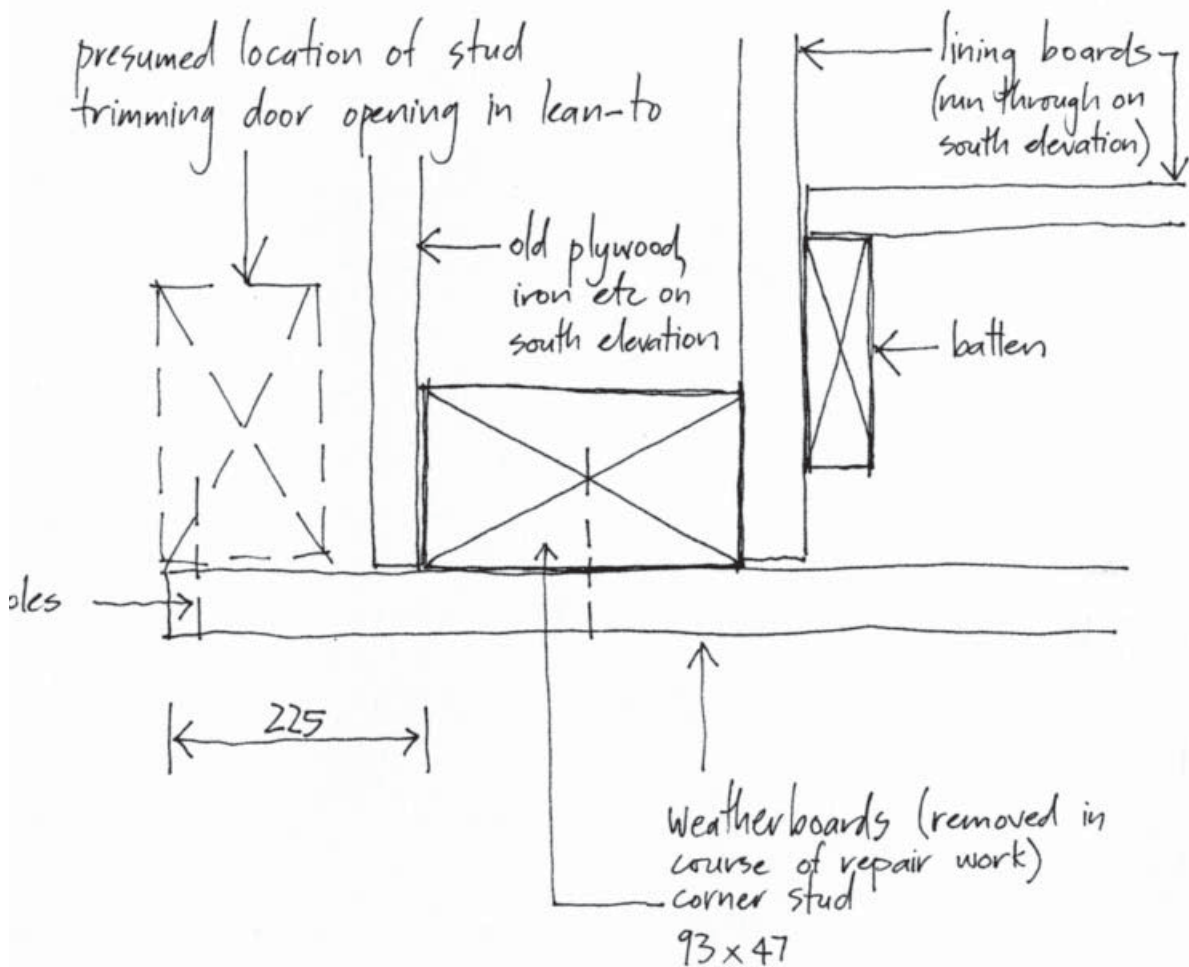 presumed location of stud
trimming door opening in lean-to
lining boards
(run through on
south elevation)
old plywood,
iron etc on
south elevation
batten
oles
225
weatherboards (removed in
course of repair work)
corner stud
93 x 47